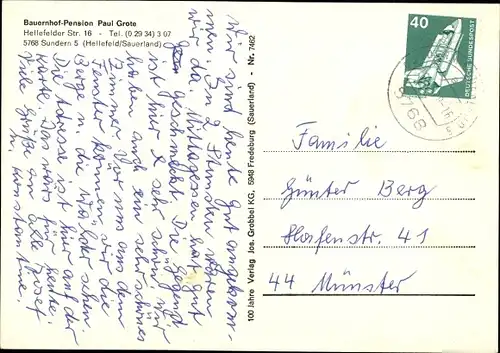 Bauernhof-Pension Paul Grote
Hellefelder Str. 16 - Tel. (0 29 34) 3 07
5768 Sundern 5 (Hellefeld/Sauerland)
Wir sind heute gut angekom-
men. In 2 Stunden waren
wir da. Mittagessen hat gut
geschmeckt. Die Gegend
ist hier sehr schön, wir
haben auch ein sehr schönes
Zimmer. Von uns aus dem
Fenster können wir die
Berge u. die Wälder sehen.
Die Adresse ist hier auf der
Karte. Das wärs für heute.
Viele Grüße an alle Josef
u.
100 Jahre Verlag Jos. Grobbel KG, 5948 Fredeburg (Sauerland) - Nr. 7462
40
DEUTSCHE BUNDESPOST
5768
Familie
Günter Berg
Hafenstr. 41
44 Münster